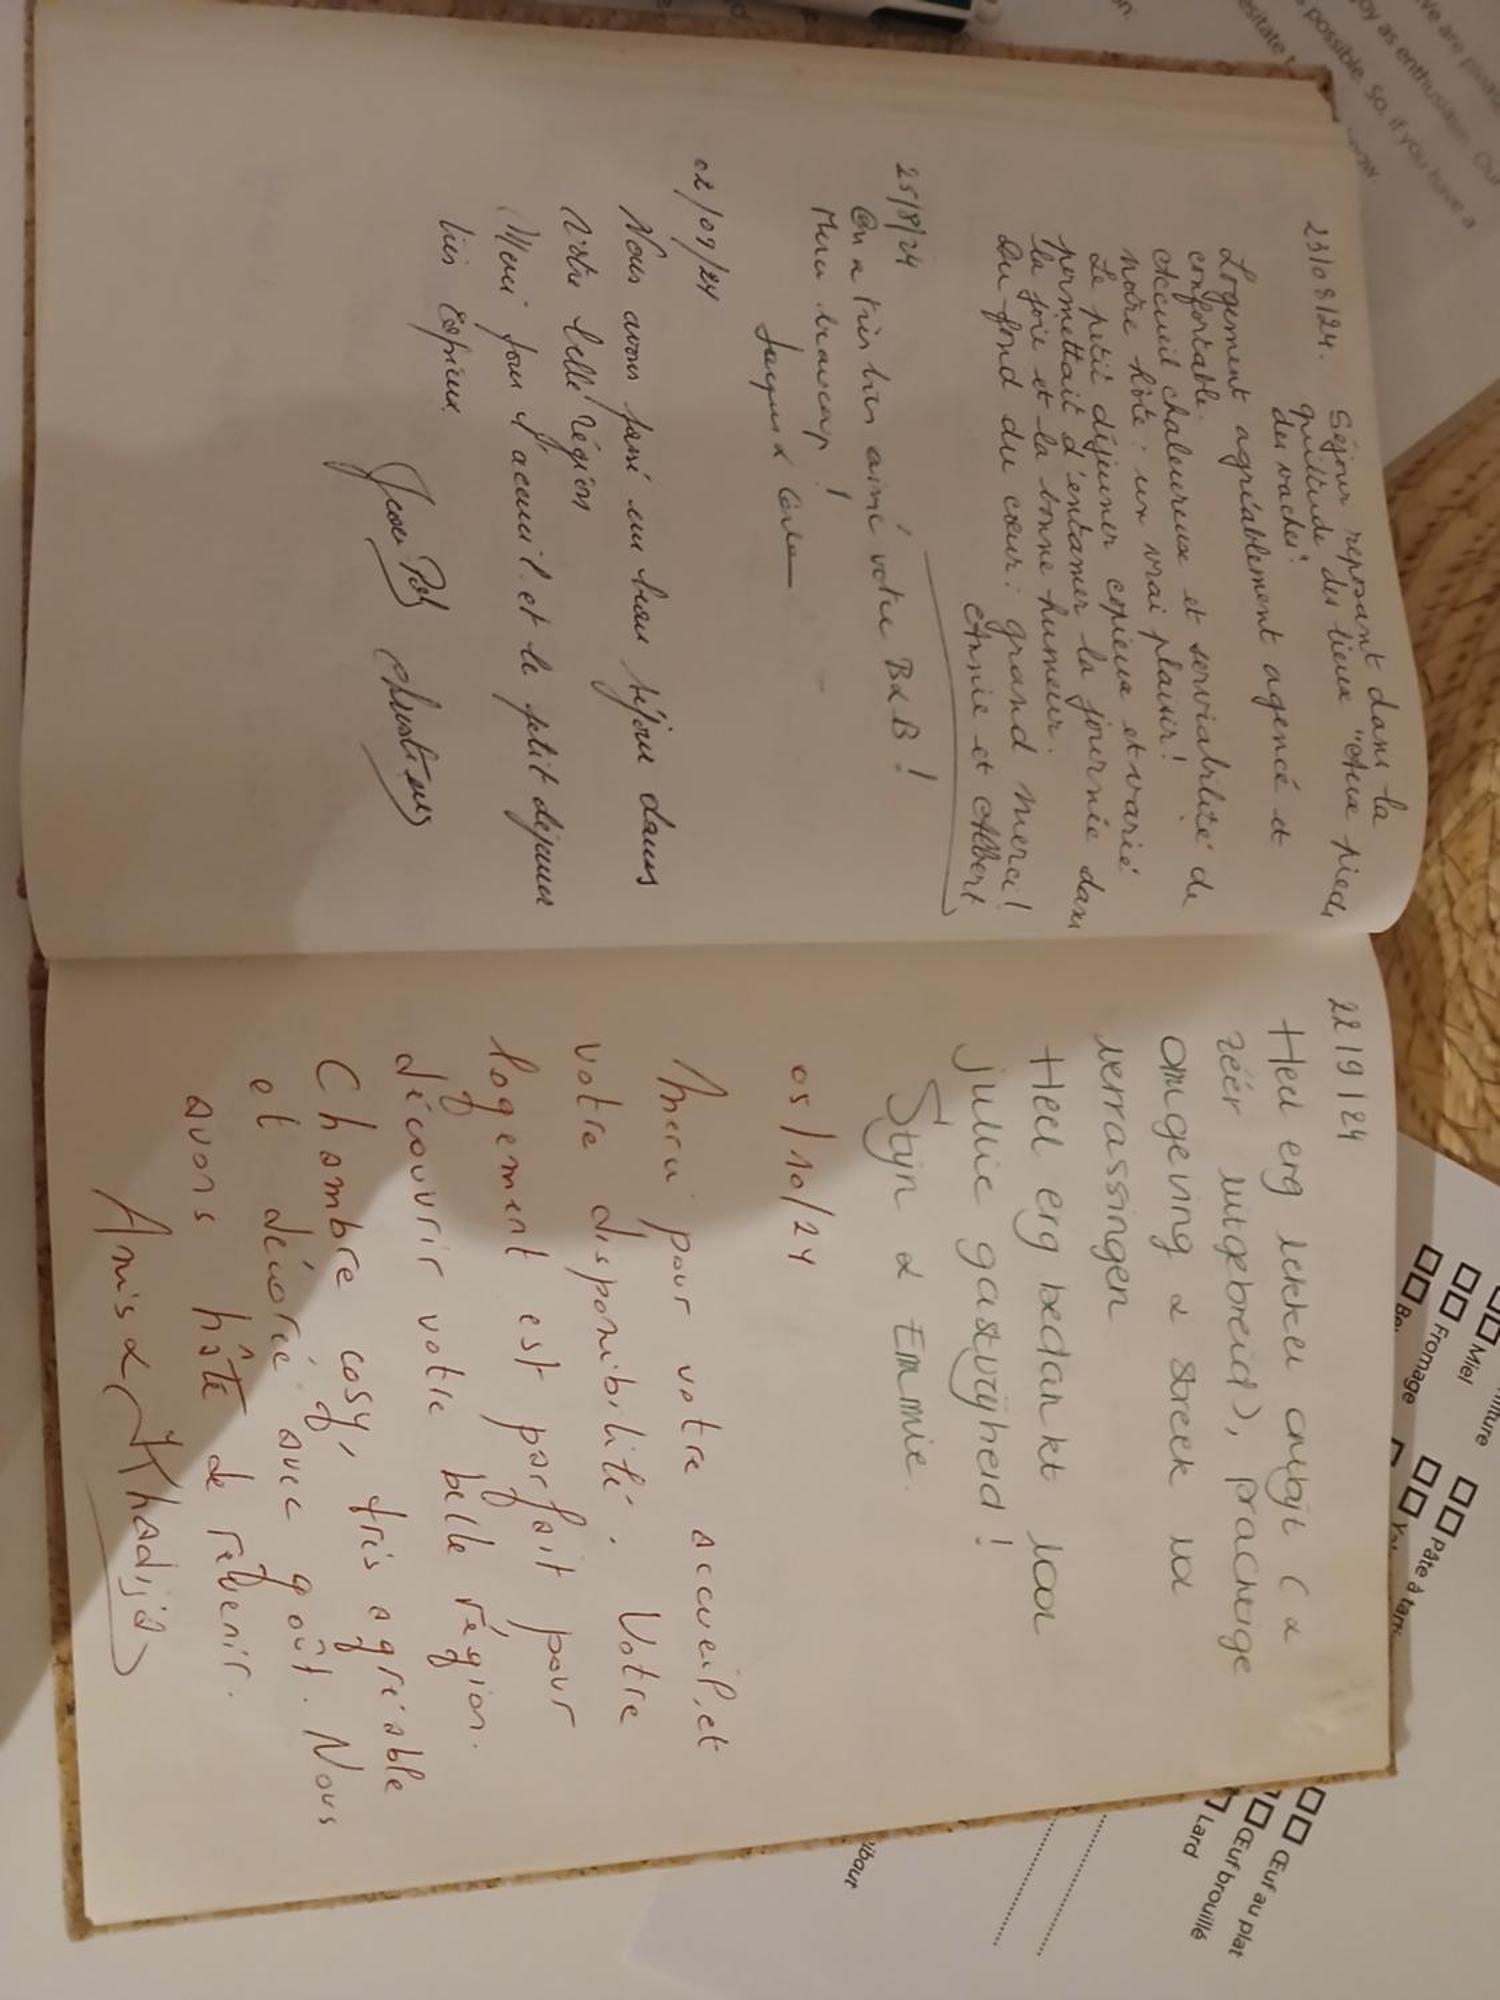 23/08/24.
Séjour reposant dans la
quiétude des lieux "Aux pieds
des vaches"
Logement agréablement agencé et
confortable.
Accueil chaleureux et serviabilité de
notre hôte : un vrai plaisir!
Le petit déjeuner copieux et varié
permettait d'entamer la journée dans
la joie et la bonne humeur.
Du fond du cœur : grand merci!
Annie et Albert
25/8/24
On a très bien aimé votre B&B !
Merci beaucoup !
Jacques &
02/09/24
Nous avons passé un beau séjour dans
Votre belle Région
Merci pour l'acceuil et le petit dejeuner
très Copieux.
Jean Pol
22/9/24
Heel erg lekker ontbijt (&
zéér uitgebreid), prachtige
omgeving & streek vol
verrassingen
Heel erg bedankt voor
jullie gastvrijheid!
Stijn & Emmie.
05/10/24
Merci pour votre accueil, et
votre disponibilité. Votre
logement est parfait pour
découvrir votre belle région.
Chambre cosy, très agréable
et décorée avec goût. Nous
avons hâte de revenir.
Anis & Khadija
Miel
Fromage
Pâte à tart
Œuf au plat
Œuf brouillé
Lard
possible. So, if you have a